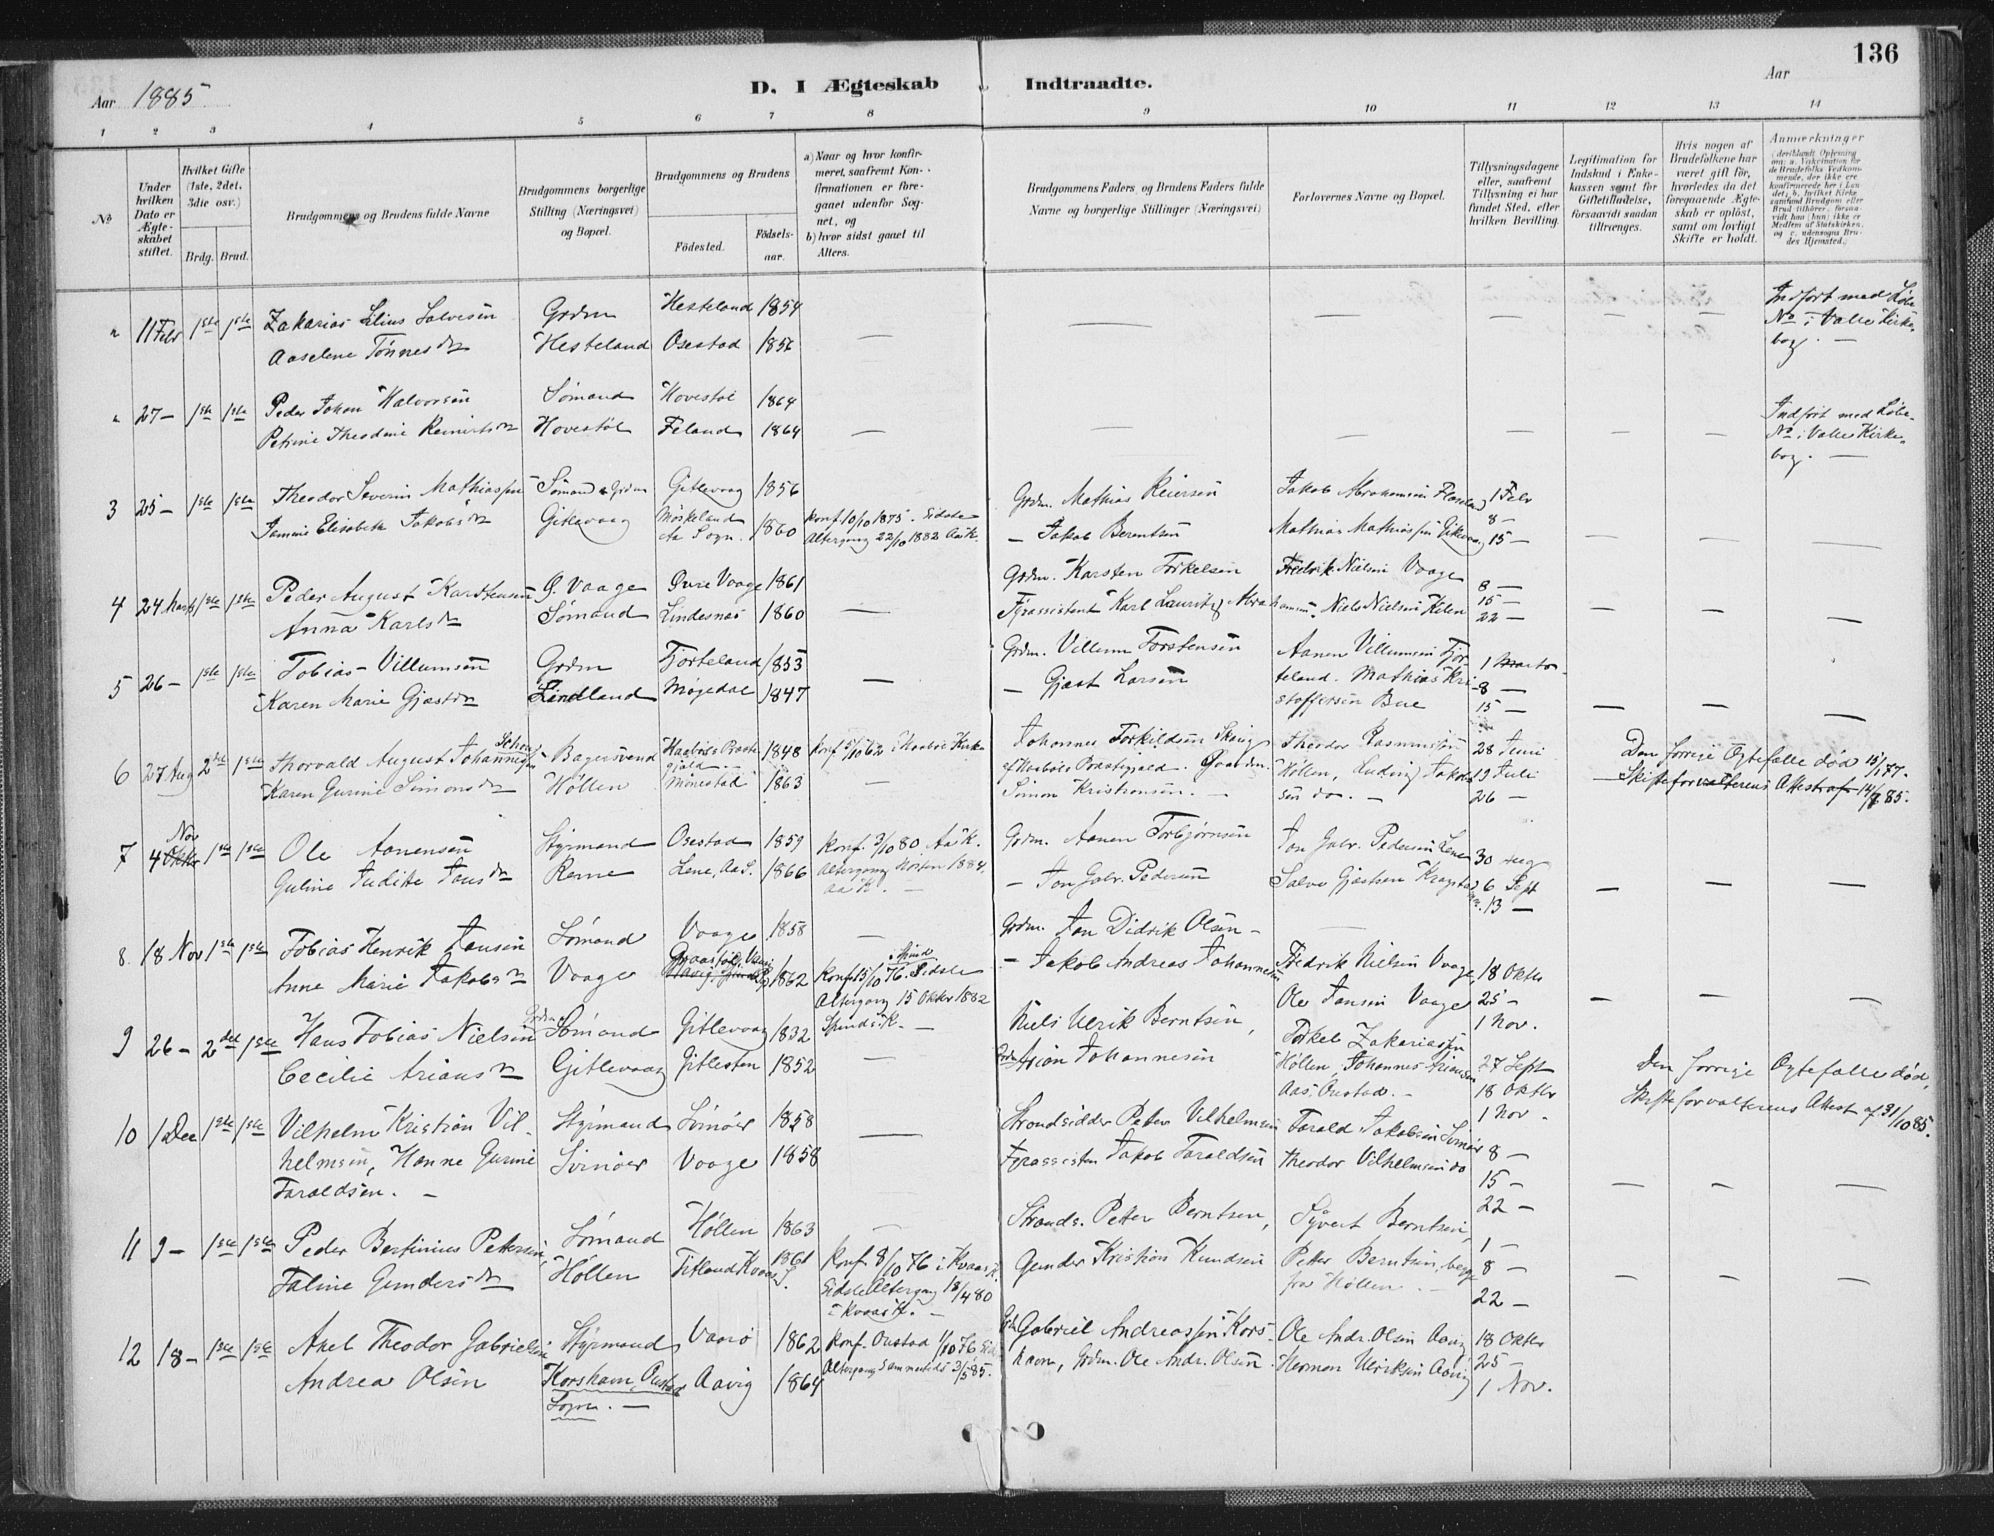 136
Aar 1885
D. I Ægteskab Indtraadte.
Aar
1 2 3 4 5 6 7 8 9 10 11 12 13 14
No
Under hvilken Dato er Ægteskabet stiftet.
Hvilket Gifte (1ste, 2det, 3die osv.)
Brdg. Brud.
Brudgommens og Brudens fulde Navne
Brudgommens borgerlige Stilling (Næringsvei) og Bopæl.
Brudgommens og Brudens
Fødested.
Fødselsaar.
a) Naar og hvor konfirmeret, saafremt Konfirmationen er foregaaet udenfor Sognet, og
b) hvor sidst gaaet til Alters.
Brudgommens Faders, og Brudens Faders fulde Navne og borgerlige Stillinger (Næringsvei)
Forlovernes Navne og Bopæl.
Tillysningsdagene eller, saafremt Tillysning ei har fundet Sted, efter hvilken Bevilling.
Legitimation for Indskud i Enkekassen samt for Giftetilladelse, forsaavidt saadan tiltrænges.
Hvis nogen af Brudefolkene har været gift før, hvorledes da det foregaaende Ægteskab er opløst, samt om lovligt Skifte er holdt.
Anmerkninger
" 11 Febr 1ste 1ste Zakarias Elius Salvesen Grdm Hesteland 1854 — — — — — — Indført med Løbe
Aaselene Tønnesdr Hesteland Osestad 1856 No i Valle Kirke-
bog. —
" 27 — 1ste 1ste Peder Johan Halvorsen Sømand Hovestøl 1864 Indført med Løbe-
Petrine Theodine Reinertsdr Hovestøl Feland 1864 — — — — — — No i Valle Kirke-
bog. —
3 25 — 1ste 1ste Theodor Severin Mathiassen Sømand & Grdm Gitlevaag 1856 Grdm. Mathias Reiersen Jakob Abrahamsen 1 Febr
Tamine Elisabeth Jakobsdr Gitlevaag Møskeland 1860 Konf. 10/10 1875. Sidste — Jakob Berentsen Mathias Mathiassen 8 —
Aa Sogn. Altergang 22/10 1882 Aa K. 15 — — — —
4 24 Marts 1ste 1ste Peder August Karstensen Ø. Vaage Øvre Vaage 1861 Grdm. Karsten Torkelsen Fredrik Nielsen Vaage 8 —
Anna Karlsdr Sømand Lindesnæs 1860 — Fyrassistent Karl Lauritz Abrahamsen Niels Nielsen 15 —
22 — — — —
5 26 — 1ste 1ste Tobias Villumsen Grdm Fjorteland 1853 Grdm. Villum Torstensen Aanen Villumsen Fjor- 1 Marts
Karen Marie Gjæstdr Lindland Møgedal 1847 — — Gjæst Larsen teland. Mathias Kri- 8 —
stoffersen Bue 15 — — — —
6 27 Aug 2det 1ste Thorvald August Johannessen Bagersvend 1848 Konf 5/10 62 i Johannes Torkildsen Theodor 28 Juni Den forrige Ægtefælle død 15/1 77.
Karen Gurine Simonsdr Høllen 1863 — Høllen, Ludvig Jakob- 19 Juli — Skifteforvalterens Attest af 14/8 85.
Simon Kristiansen. — sen do. — 26 —
7 4 Nov 1ste 1ste Ole Aanensen Styrmand Osestad 1859 Konf. 3/10 80 Aa K. Grdm. Aanen Torbjørnsen Jon Gabr. Pedersen Lene 30 Aug
Guline Judite Jonsdr Rerne Lene, Aa S. 1866 Altergang Høsten 1884, — Jon Gabr. Pedersen Salve Gjæstsen 6 Sept
Aa K. — 13 — — — —
8 18 Nov 1ste 1ste Tobias Henrik Jansen Sømand Vaage 1858 — Grdm. Jan Didrik Olsen —
Anne Marie Jakobsdr Vaage 1862 Konf 15/10 76. Sidste — Jakob Andreas Johannesen Fredrik Nielsen Vaage, 18 Oktbr
Altergang 15 Oktbr 1882 Ole Jansen Vaage 25 — — — —
Spinds K. — 1 Nov.
9 26 — 2det 1ste Hans Tobias Nielsen Grdm. Sømand Gitlevaag 1832 Niels Ulrik Berntsen, Torkel Zakariassen
Cecilie Ariansdr Gitlevaag Gitlesten 1852 — Grdm. Arian Johannesen Høllen, Johannes Ariansen 27 Sept Den forrige Ægtefælle død,
Aas, Oustad. — 18 Oktbr Skifteforvalterens Attest af 31/10 85.
1 Nov.
10 1 Dec 1ste 1ste Vilhelm Kristian Vil- Styrmand Svinøer 1858 — Strandsidder Peter Vilhelmsen Tarald Jakobsen Svinør
helmsen, Hanne Gurine Svinøer Vaage 1858 Fyrassisten Jakob Taraldsen Theodor Vilhelmsen do 8 —
Taraldsen. — 15 — — — —
22 —
11 9 — 1ste 1ste Peder Bertinius Petersen, Sømand Høllen 1863 — Strands. Petter Berntsen, Syvert Berntsen, 1 —
Taline Gundersdr Høllen Titland Kvaas S. 1861 Konf. 8/10 76 i Kvaas K. Gunder Kristian Knudsen Petter Berntsen, begge 8 —
Sidste Altergang 18/4 80 fra Høllen. — 22 — — — —
i Kvaas K. —
12 18 — 1ste 1ste Axel Theodor Gabrielsen Styrmand Vaarø 1862 Konf. Oustad 1/10 76 Gabriel Andreassen Kors- Ole Andr. Olsen Aavig 18 Oktbr
Andrea Olsen Korshavn, Oustad Aavig 1864 Altergang sammesteds 3/5 85. havn, Grdm. Ole Andr. Olsen. Herman Ulriksen Aavig 25 —
Sogn. — 1 Nov.